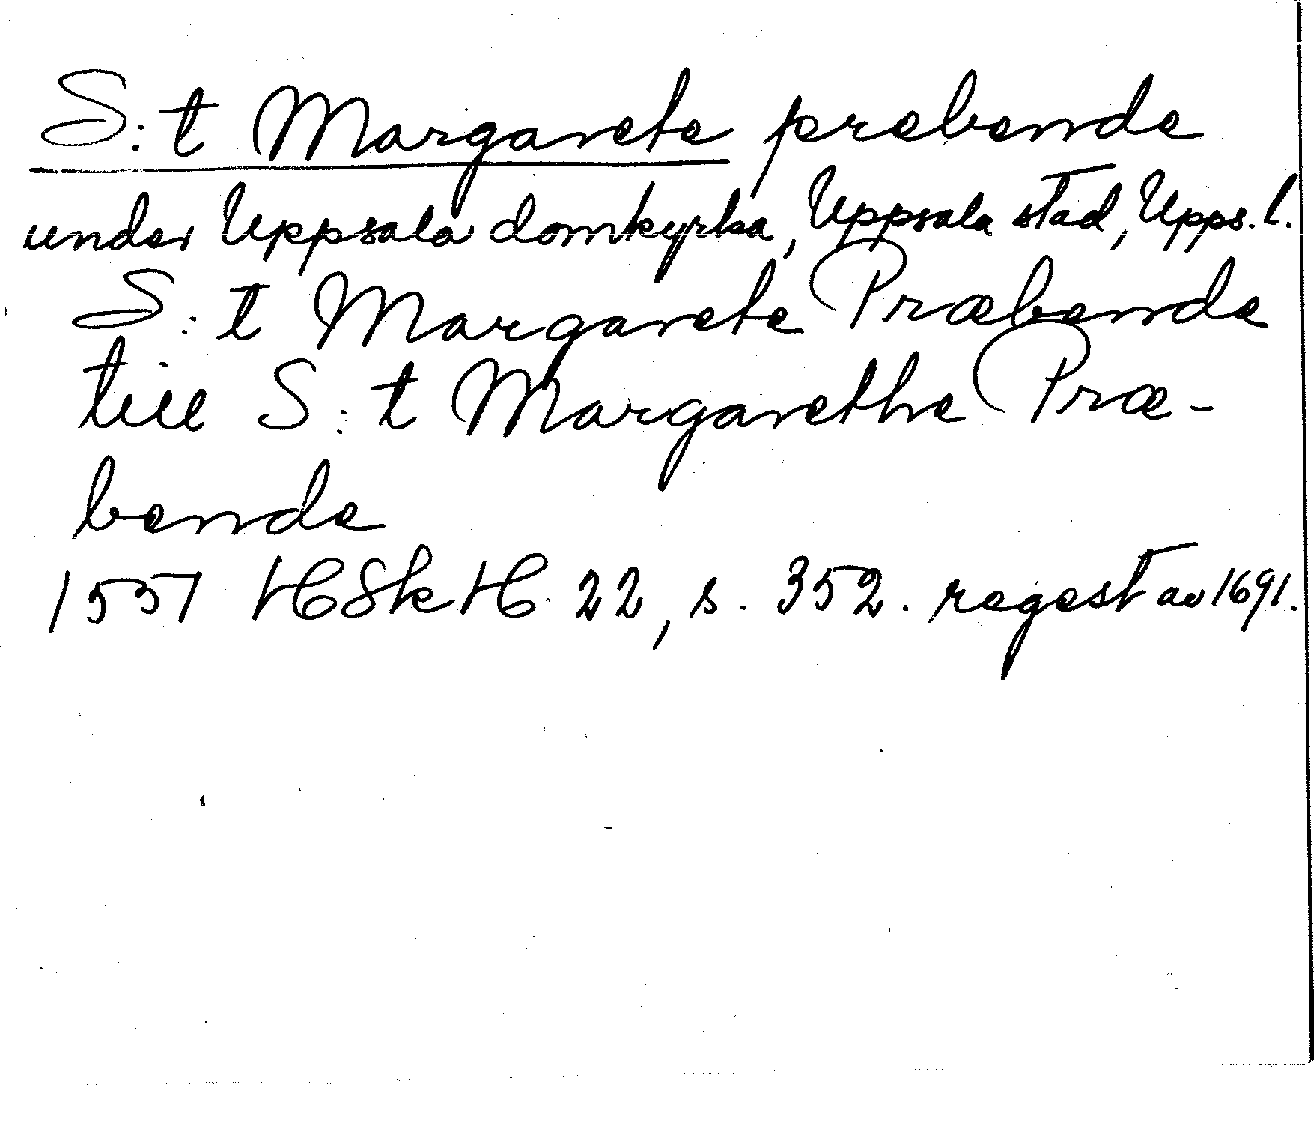 S:t Margarete prebende
under Uppsala domkyrka, Uppsala stad, Upps. l.
S:t Margarete Præbende
till S:t Margarethe Præ-
bende
1557 HSkH 22, s. 352. regest av 1691.